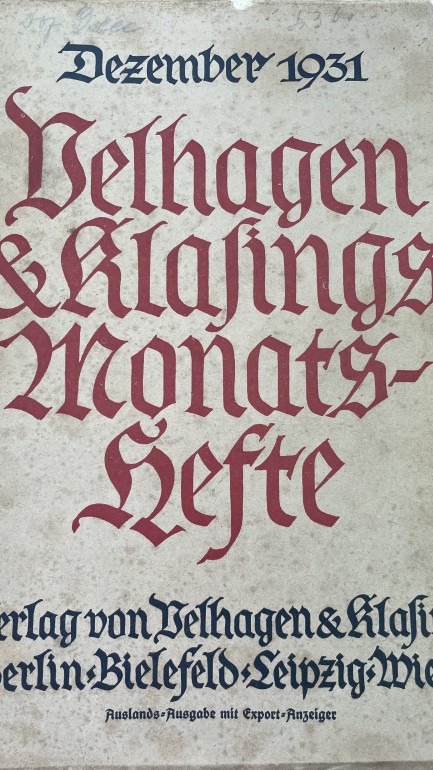 Dezember 1931
Velhagen
& Klasings
Monats-
Hefte
erlag von Velhagen & Klasin
Berlin-Bielefeld-Leipzig-Wie
Auslands-Ausgabe mit Export-Anzeiger